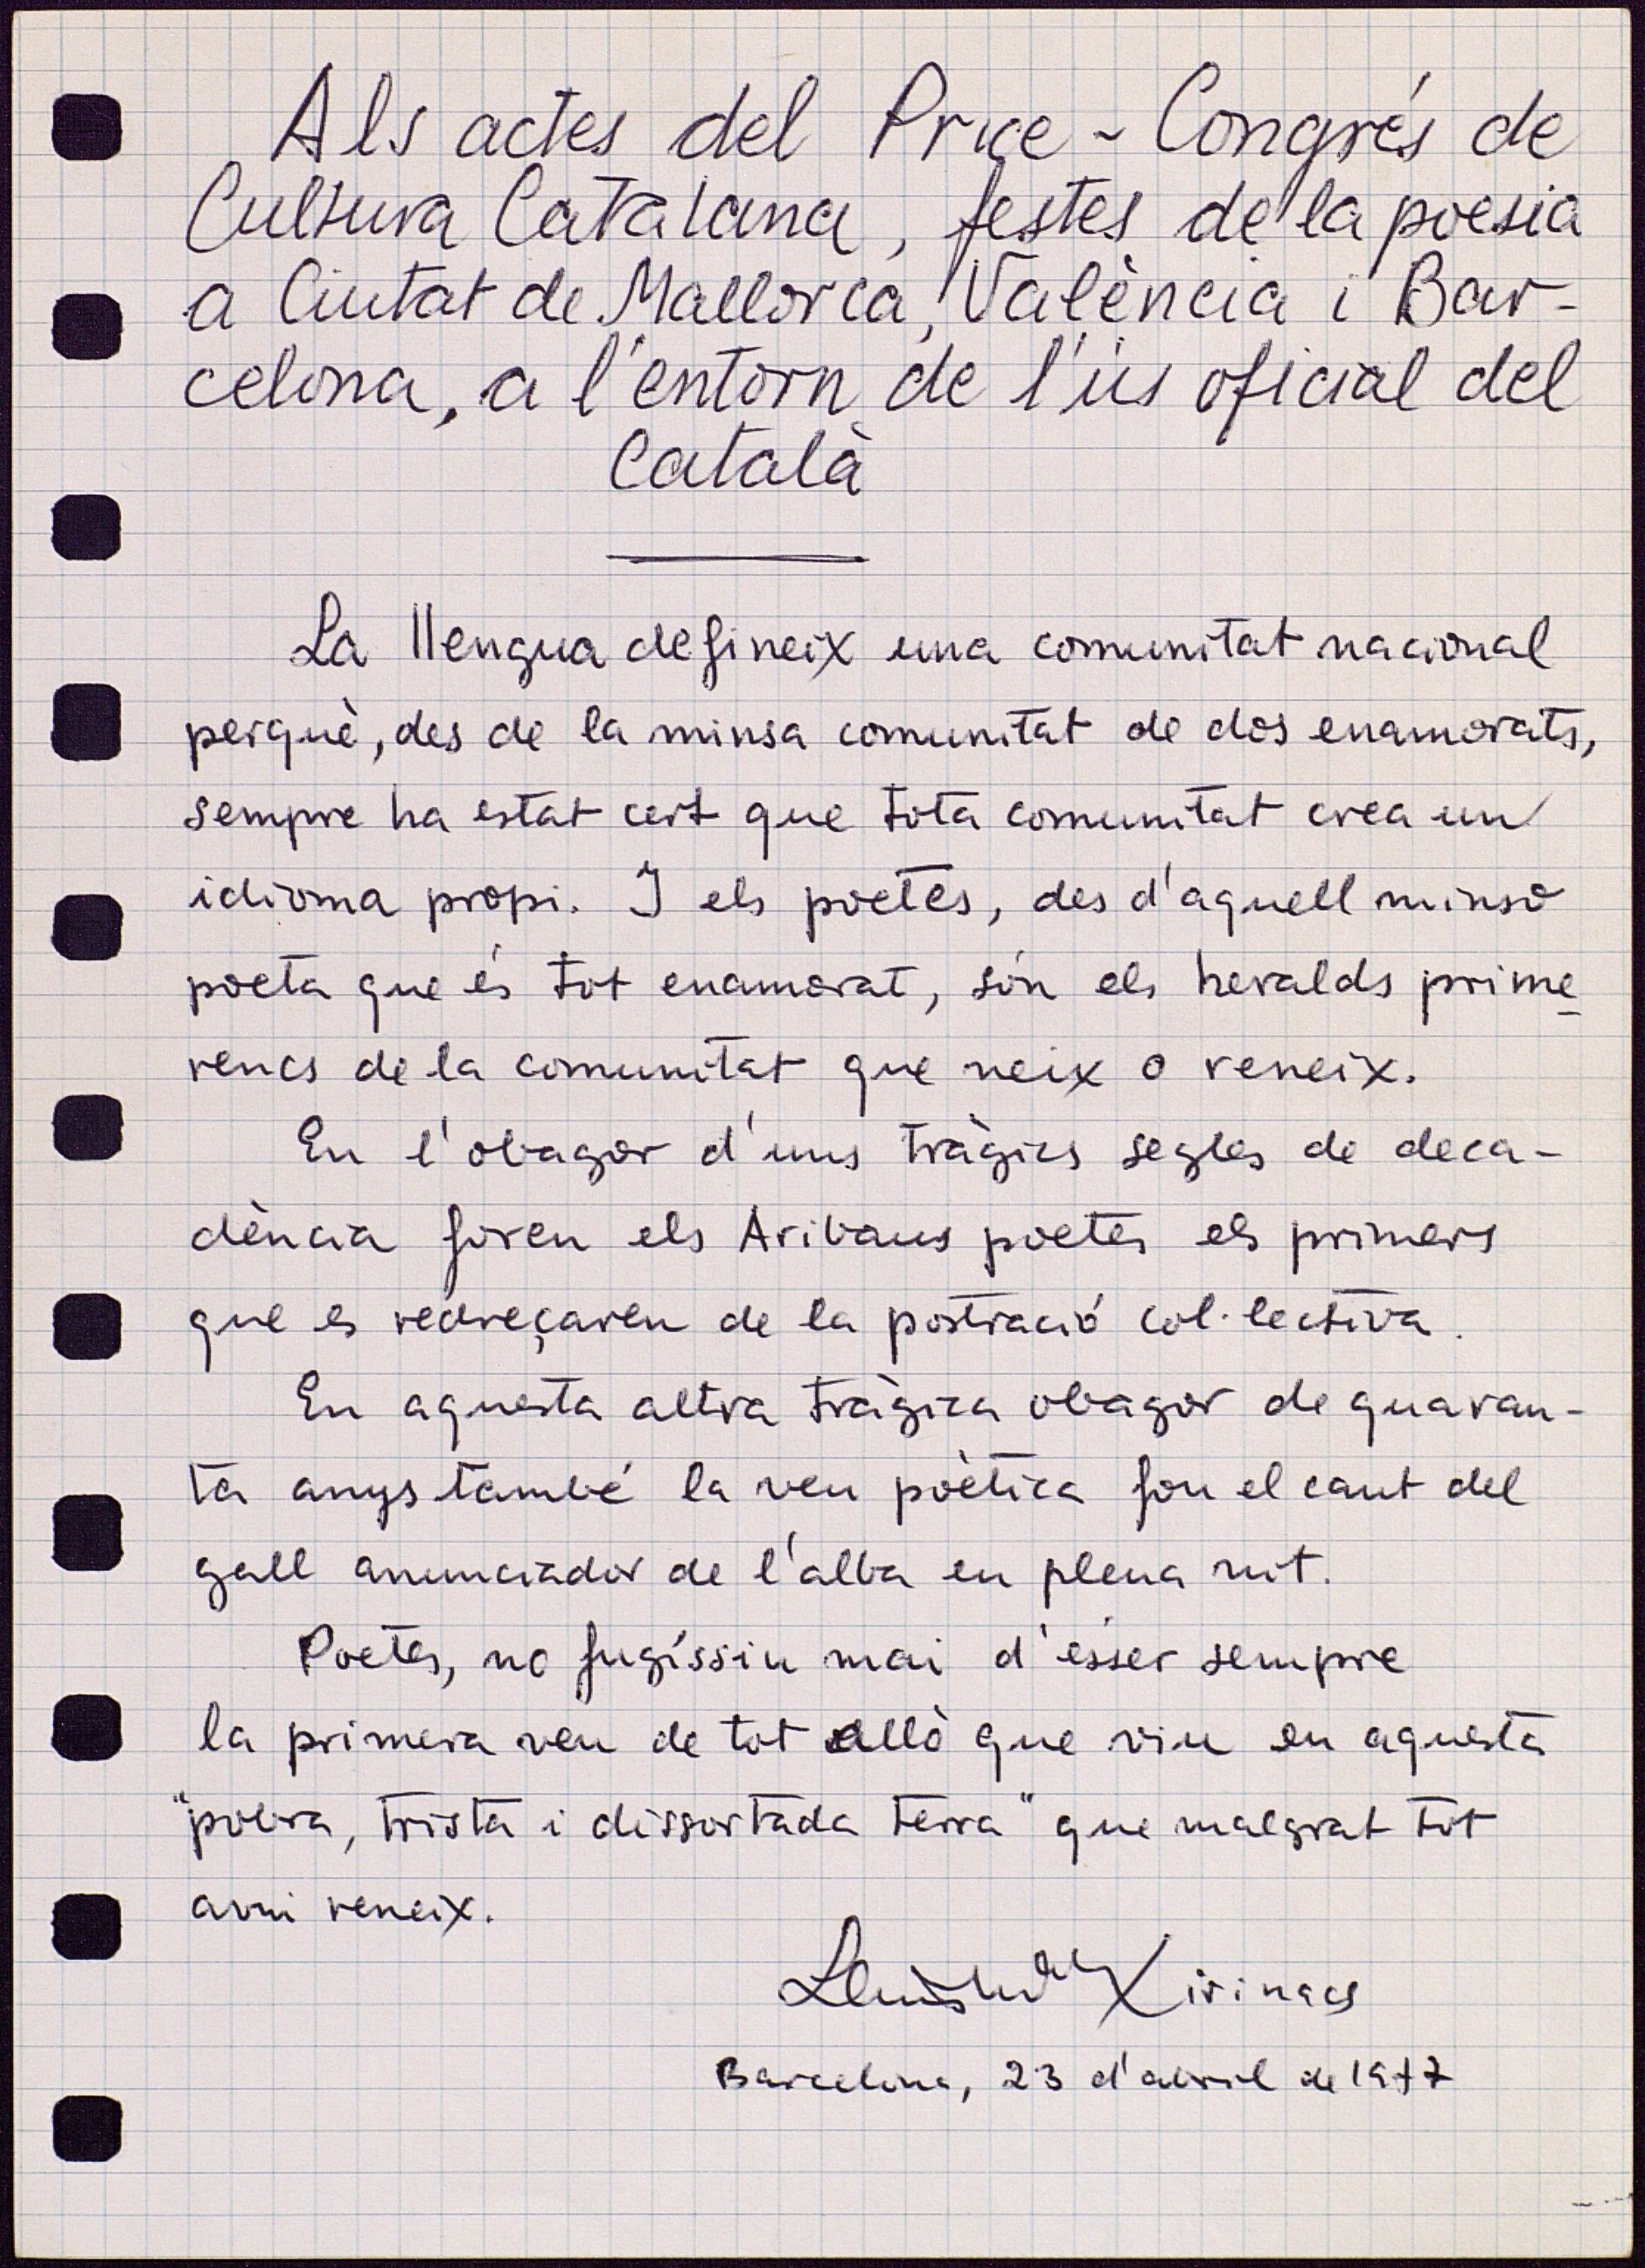 Als actes del Price - Congrés de
Cultura Catalana, festes de la poesia
a Ciutat de Mallorca, València i Bar-
celona, a l'entorn de l'ús oficial del
Català
La llengua defineix una comunitat nacional
perquè, des de la minsa comunitat de dos enamorats,
sempre ha estat cert que tota comunitat crea un
idioma propi. I els poetes, des d'aquell minso
poeta que és tot enamorat, són els heralds prime
rencs de la comunitat que neix o reneix.
En l'obagor d'uns tràgics segles de deca-
dència foren els Aribaus poetes els primers
que es redreçaren de la postració col·lectiva.
En aquesta altra tràgica obagor de quaran-
ta anys també la veu poètica fou el cant del
gall anunciador de l'alba en plena nit.
Poetes, no fugíssiu mai d'ésser sempre
la primera veu de tot allò que viu en aquesta
"pobra, trista i dissortada terra" que malgrat tot
avui reneix.
Lluís Mª Xirinacs
Barcelona, 23 d'abril de 1977